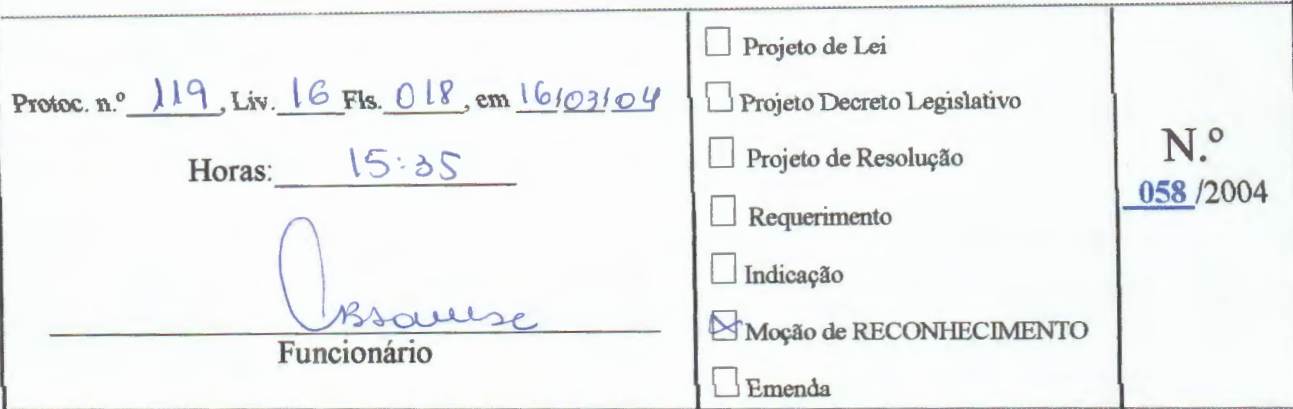 Protoc. n.º 119, Liv. 16 Fls. 018, em 16/03/04
Horas: 15:35
Funcionário
Projeto de Lei
Projeto Decreto Legislativo
Projeto de Resolução
Requerimento
Indicação
Moção de RECONHECIMENTO
Emenda
N.º
058 /2004